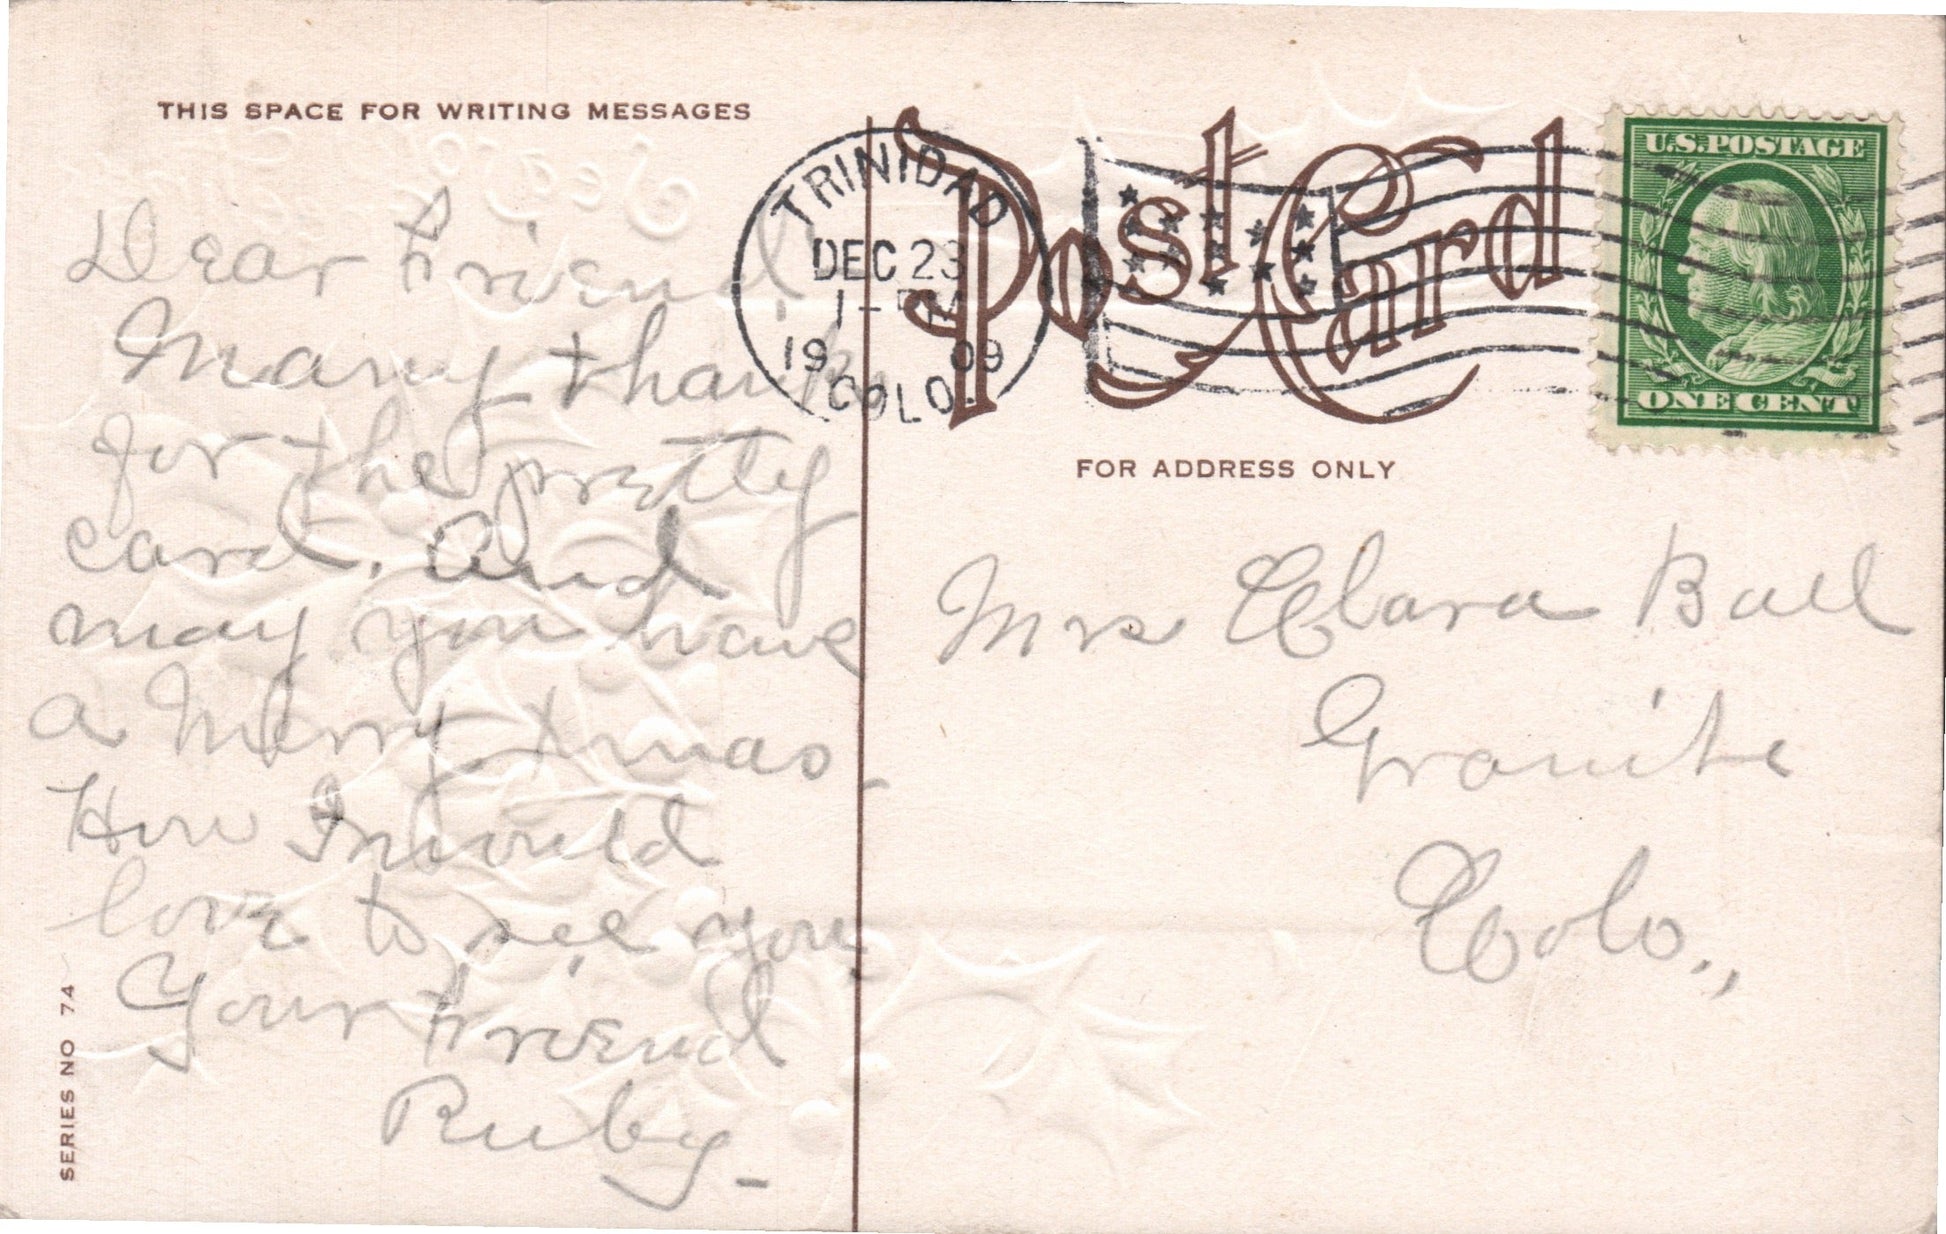 THIS SPACE FOR WRITING MESSAGES
Dear Friend,
Many thanks
for the pretty
card. And
may you have
a Merry Xmas_
How I would
love to see you.
Your Friend
Ruby_
SERIES NO 74
TRINIDAD
DEC 23
1- PM
1909
COLO.
Post Card
U.S.POSTAGE
ONE CENT
FOR ADDRESS ONLY
Mrs Clara Ball
Granite
Colo.,